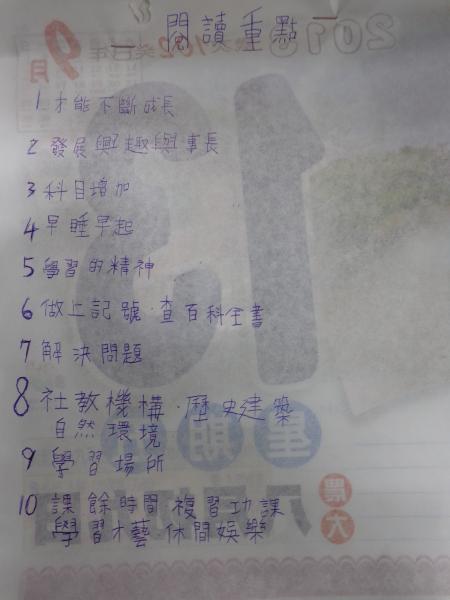 閱讀重點
1 才能不斷成長
2 發展興趣與事長
3 科目增加
4 早睡早起
5 學習的精神
6 做上記號·查百科全書
7 解決問題
8 社教機構·歷史建築
自然環境
9 學習場所
10 課餘時間 複習功課
學習才藝 休閒娛樂